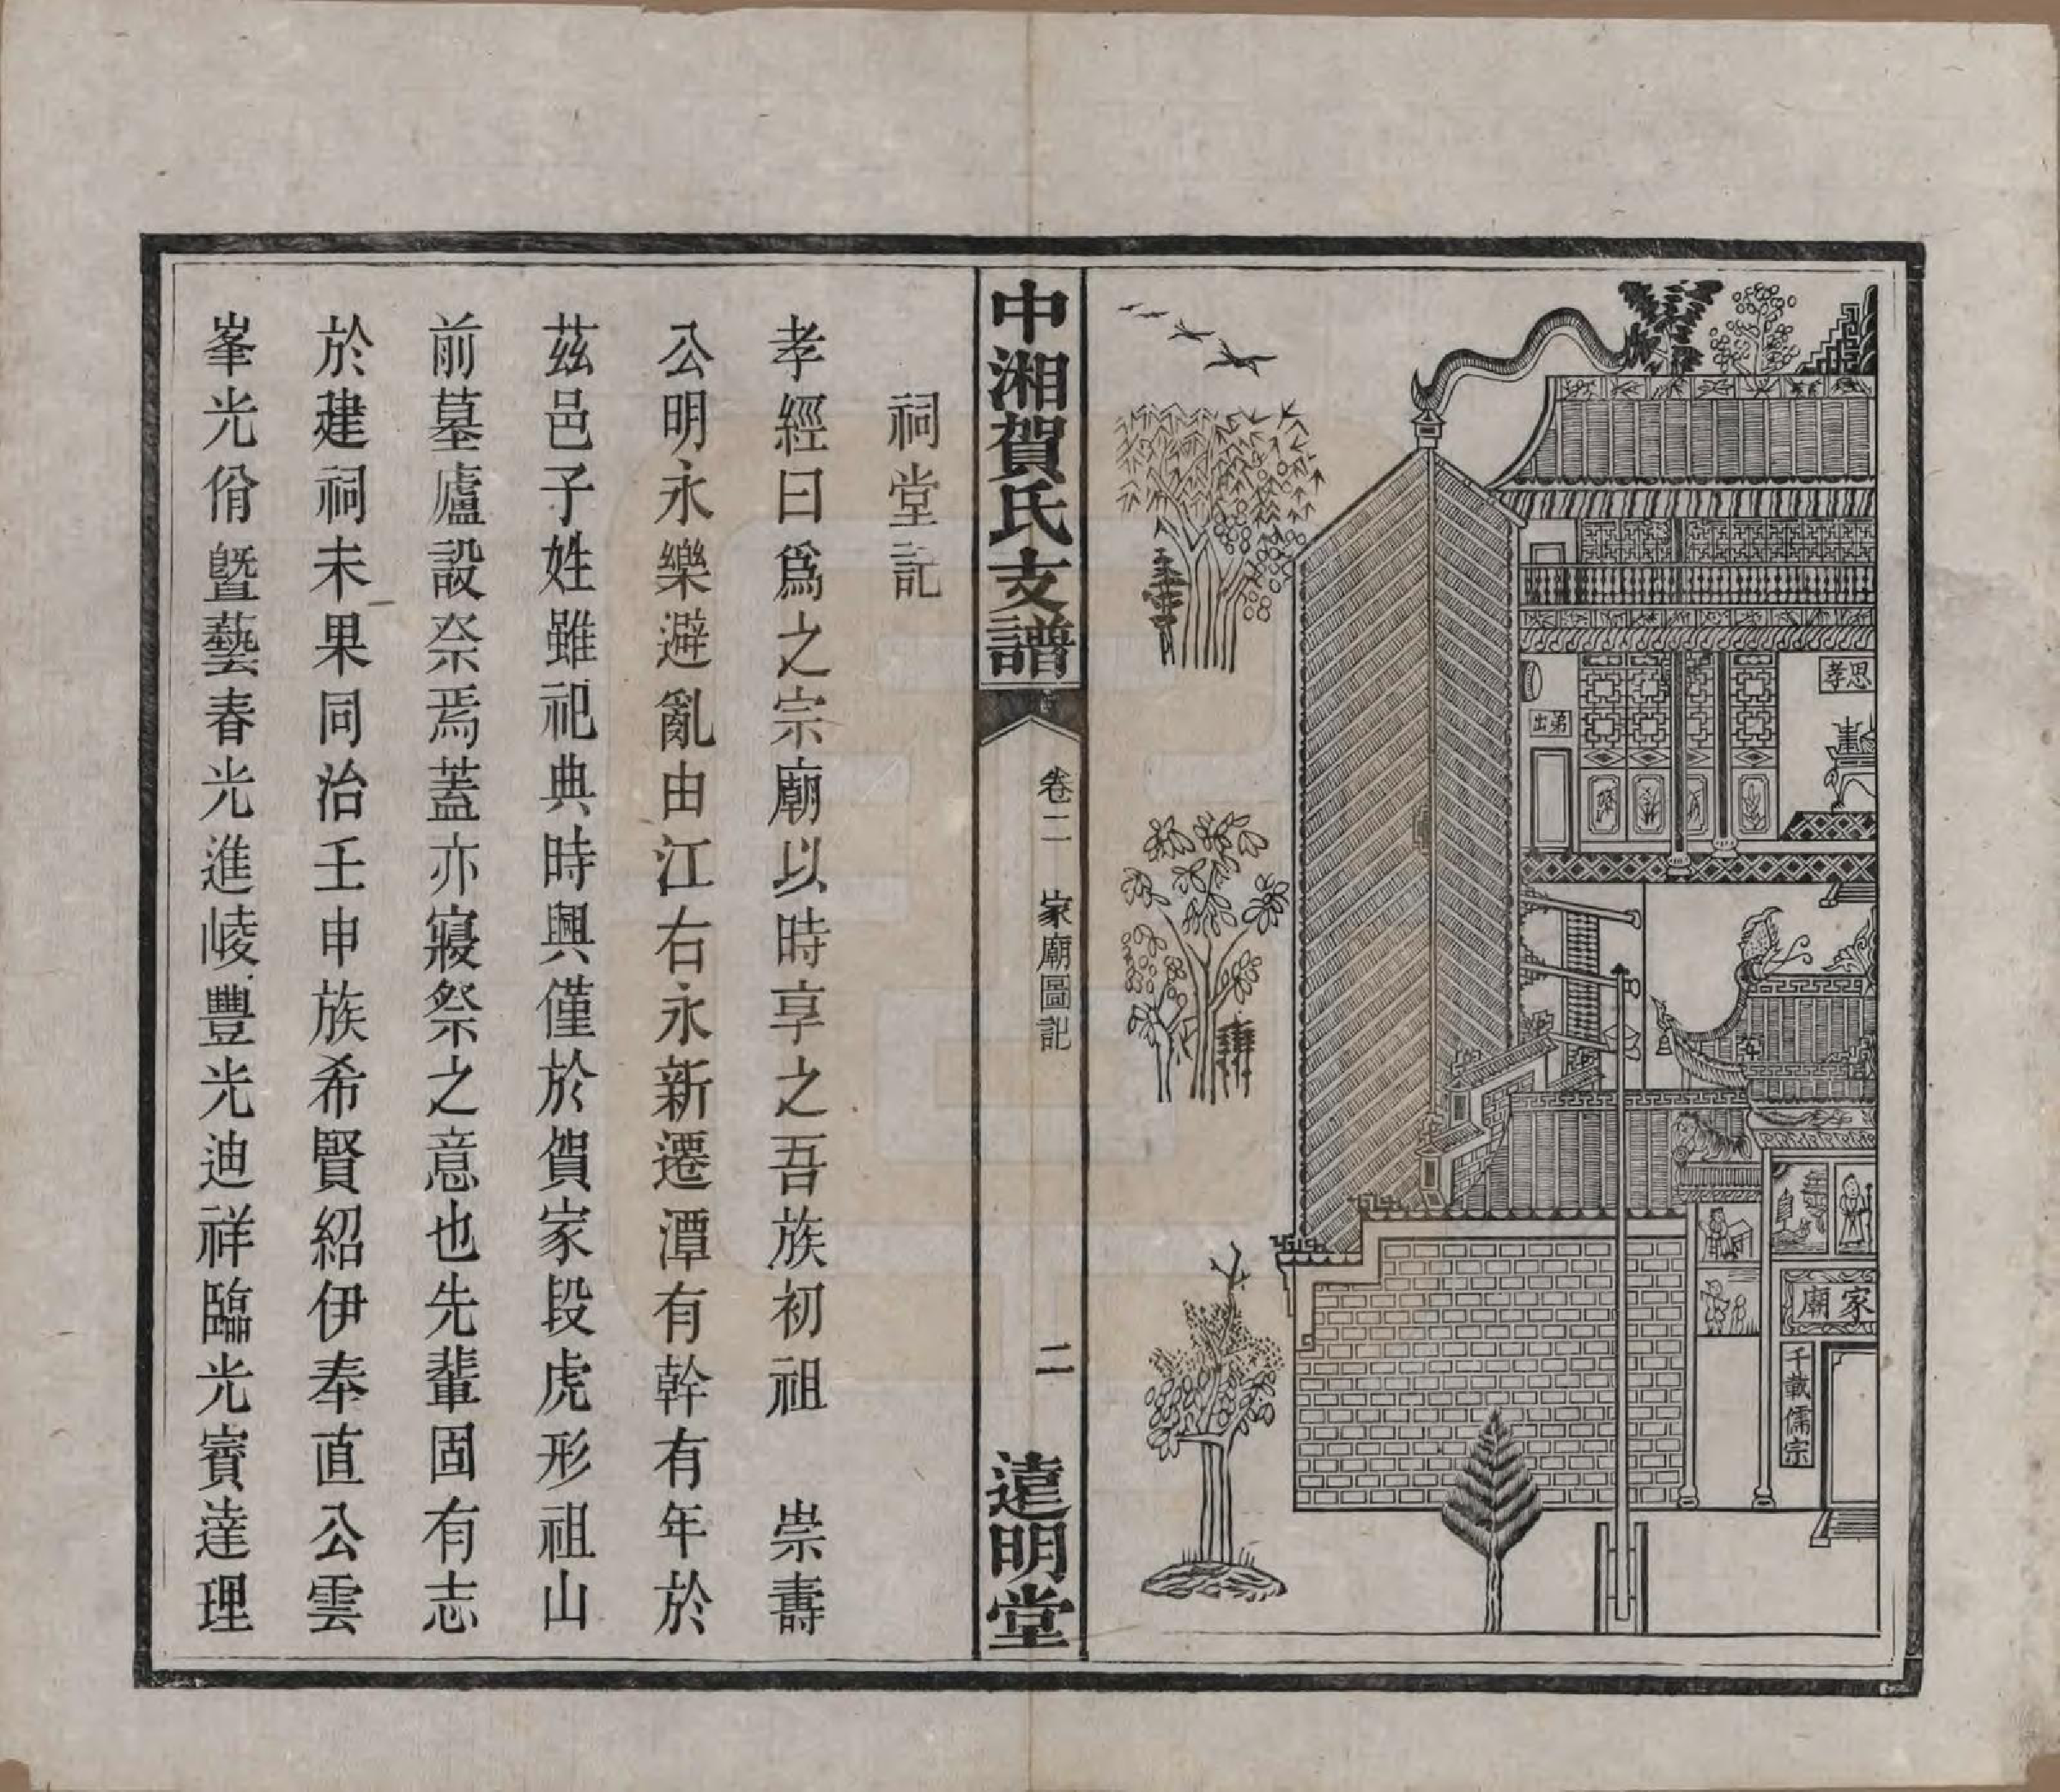 孝思
弟出
家廟
千載儒宗
中湘賀氏支譜
卷二
家廟圖記
二
遠明堂
祠堂記
孝經曰爲之宗廟以時享之吾族初祖 崇壽
公明永樂避亂由江右永新遷潭有幹有年於
茲邑子姓雖祀典時興僅於賀家段虎形祖山
前墓廬設祭焉蓋亦寢祭之意也先輩固有志
於建祠未果同治壬申族希賢紹伊奉直公雲
峯光佾暨藝春光進崚豐光迪祥臨光賓達理